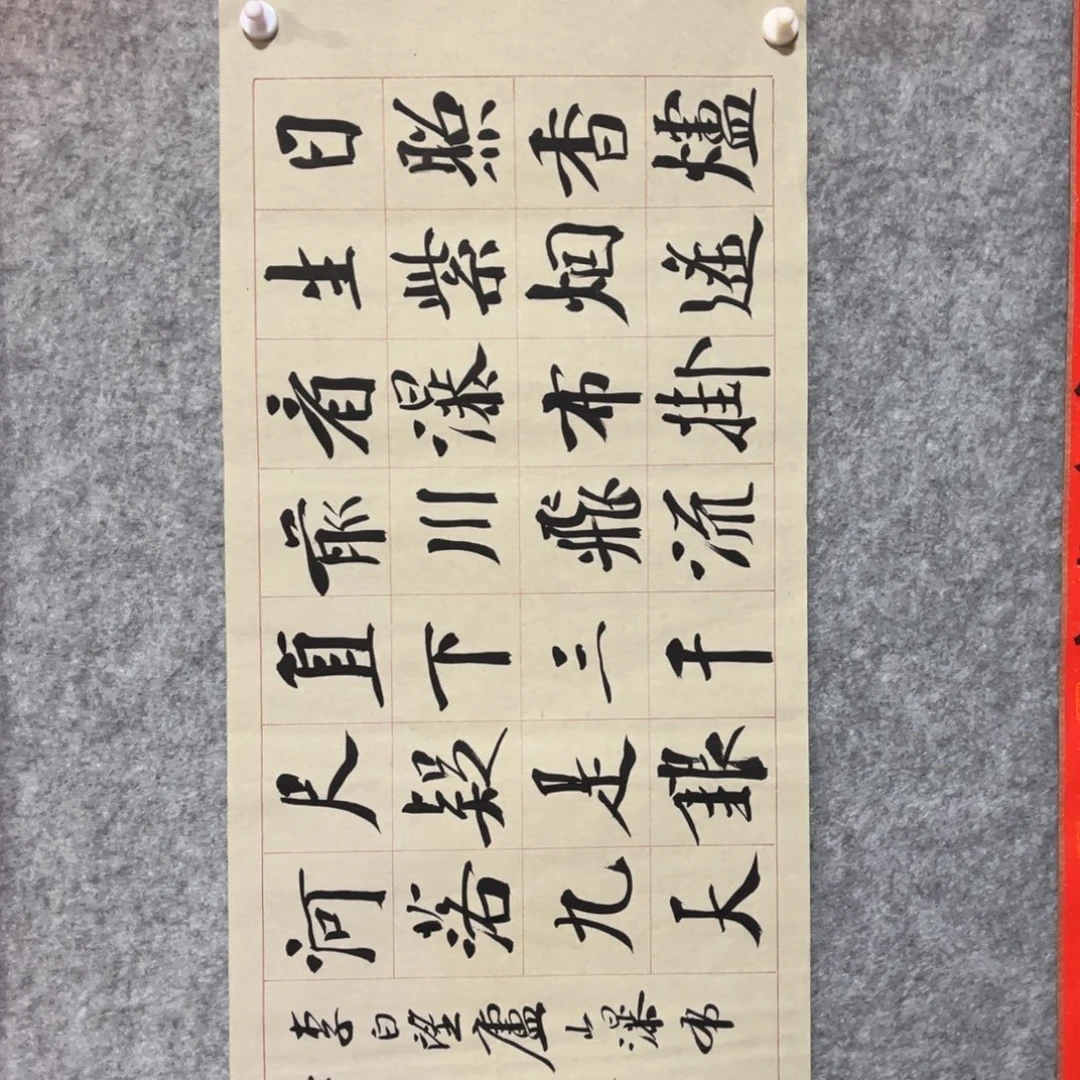 日照香爐
生紫烟遥
看瀑布掛
前川飛流
直下三千
尺疑是銀
河落九天
李白望廬山瀑布